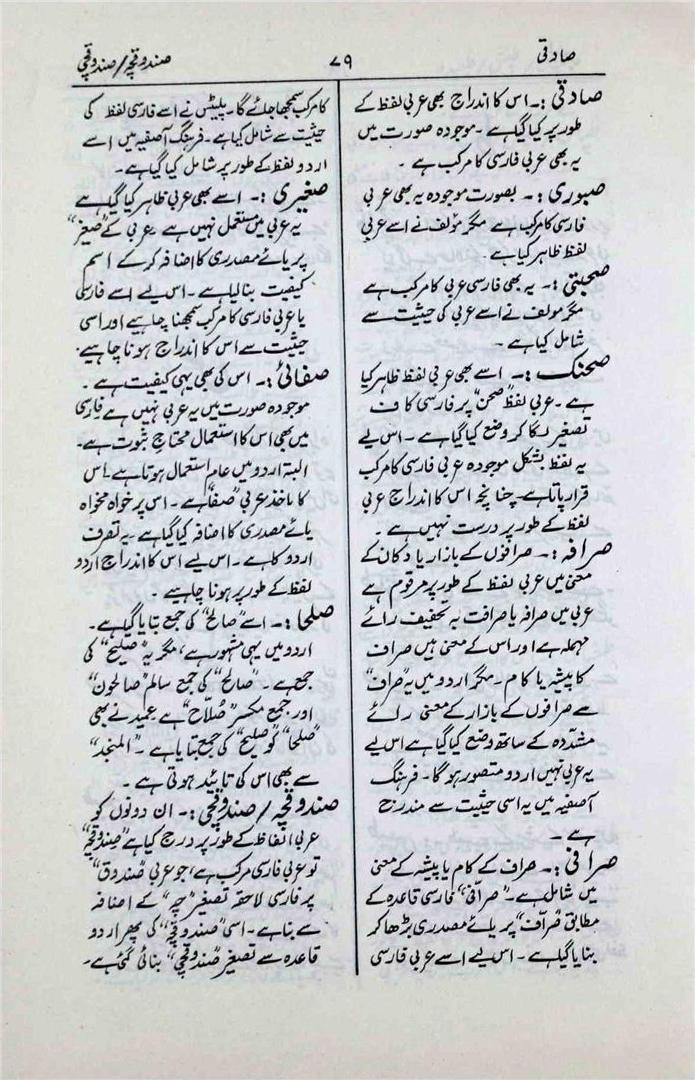 صادقی
۷۹
صندوقچہ/صندوقچی
صادقی :۔ اس کا اندراج بھی عربی لفظ کے
طور پر کیا گیا ہے ۔ موجودہ صورت میں
یہ بھی عربی فارسی کا مرکب ہے ۔
صبوری :۔ بصورت موجودہ یہ بھی عربی
فارسی کا مرکب ہے مگر مؤلف نے اسے عربی
لفظ ظاہر کیا ہے ۔
صحبتی :۔ یہ بھی فارسی عربی کا مرکب ہے
مگر مولف نے اسے عربی کی حیثیت سے
شامل کیا ہے ۔
صحنک :۔ اسے بھی عربی لفظ ظاہر کیا
ہے ۔ عربی لفظ "صحن" پر فارسی کاف
تصغیر لگا کر وضع کیا گیا ہے ۔ اس لیے
یہ لفظ بشکل موجودہ عربی فارسی کا مرکب
قرار پاتا ہے ۔ چنانچہ اس کا اندراج عربی
لفظ کے طور پر درست نہیں ہے ۔
صرافہ :۔ صرافوں کے بازار یا دکان کے
معنی میں عربی لفظ کے طور پر مرقوم ہے
عربی میں صرافہ یا صرافت بہ تخفیف رائے
مہملہ ہے اور اس کے معنی ہیں صراف
کا پیشہ یا کام ۔ مگر اردو میں یہ "صراف"
سے صرافوں کے بازار کے معنی رائے
مشددہ کے ساتھ وضع کیا گیا ہے اس لیے
یہ عربی نہیں اردو متصور ہوگا ۔ فرہنگ
آصفیہ میں یہ اسی حیثیت سے مندرج
ہے ۔
صرافی :۔ صراف کے کام یا پیشہ کے معنی
میں شامل ہے ۔ "صرافی" فارسی قاعدہ کے
مطابق "صرّاف" پر یائے مصدری بڑھا کر
بنایا گیا ہے ۔ اس لیے اسے عربی فارسی
کا مرکب سمجھا جائے گا ۔ پلیٹس نے اسے فارسی لفظ کی
حیثیت سے شامل کیا ہے ۔ فرہنگ آصفیہ میں اسے
اردو لفظ کے طور پر شامل کیا گیا ہے ۔
صغیری :۔ اسے بھی عربی ظاہر کیا گیا ہے
یہ عربی میں مستعمل نہیں ہے ۔ عربی کے "صغیر"
پر یائے مصدری کا اضافہ کر کے اسم
کیفیت بنا لیا ہے ۔ اس لیے اسے فارسی
یا عربی فارسی کا مرکب سمجھنا چاہیے اور اسی
حیثیت سے اس کا اندراج ہونا چاہیے ۔
صفائی :۔ اس کی بھی یہی کیفیت ہے ۔
موجودہ صورت میں یہ عربی نہیں ہے فارسی
میں بھی اس کا استعمال محتاج ثبوت ہے ۔
البتہ اردو میں عام استعمال ہوتا ہے ۔ اس
کا ماخذ عربی "صفا" ہے ۔ اس پر خواہ مخواہ
یائے مصدری کا اضافہ کیا گیا ہے ۔ یہ تصرف
اردو کا ہے ۔ اس لیے اس کا اندراج اردو
لفظ کے طور پر ہونا چاہیے ۔
صلحا :۔ اسے "صالح" کی جمع بتایا گیا ہے ۔
اردو میں یہی مشہور ہے، مگر یہ "صلیح" کی
جمع ہے ۔ "صالح" کی جمع سالم "صالحون"
اور جمع مکسر "صُلّاح" ہے عمید نے بھی
"صلحا" کو "صلیح" کی جمع بتایا ہے ۔ "المنجد"
سے بھی اس کی تائید ہوتی ہے ۔
صندوقچہ/صندوقچی :۔ ان دونوں کو
عربی الفاظ کے طور پر درج کیا ہے "صندوقچہ"
تو عربی فارسی مرکب ہے، جو عربی "صندوق"
پر فارسی لاحقہ تصغیر "چہ" کے اضافہ
سے بنا ہے ۔ اسی "صندوقچہ" کی پھر اردو
قاعدہ سے تصغیر "صندوقچی" بنائی گئی ہے ۔